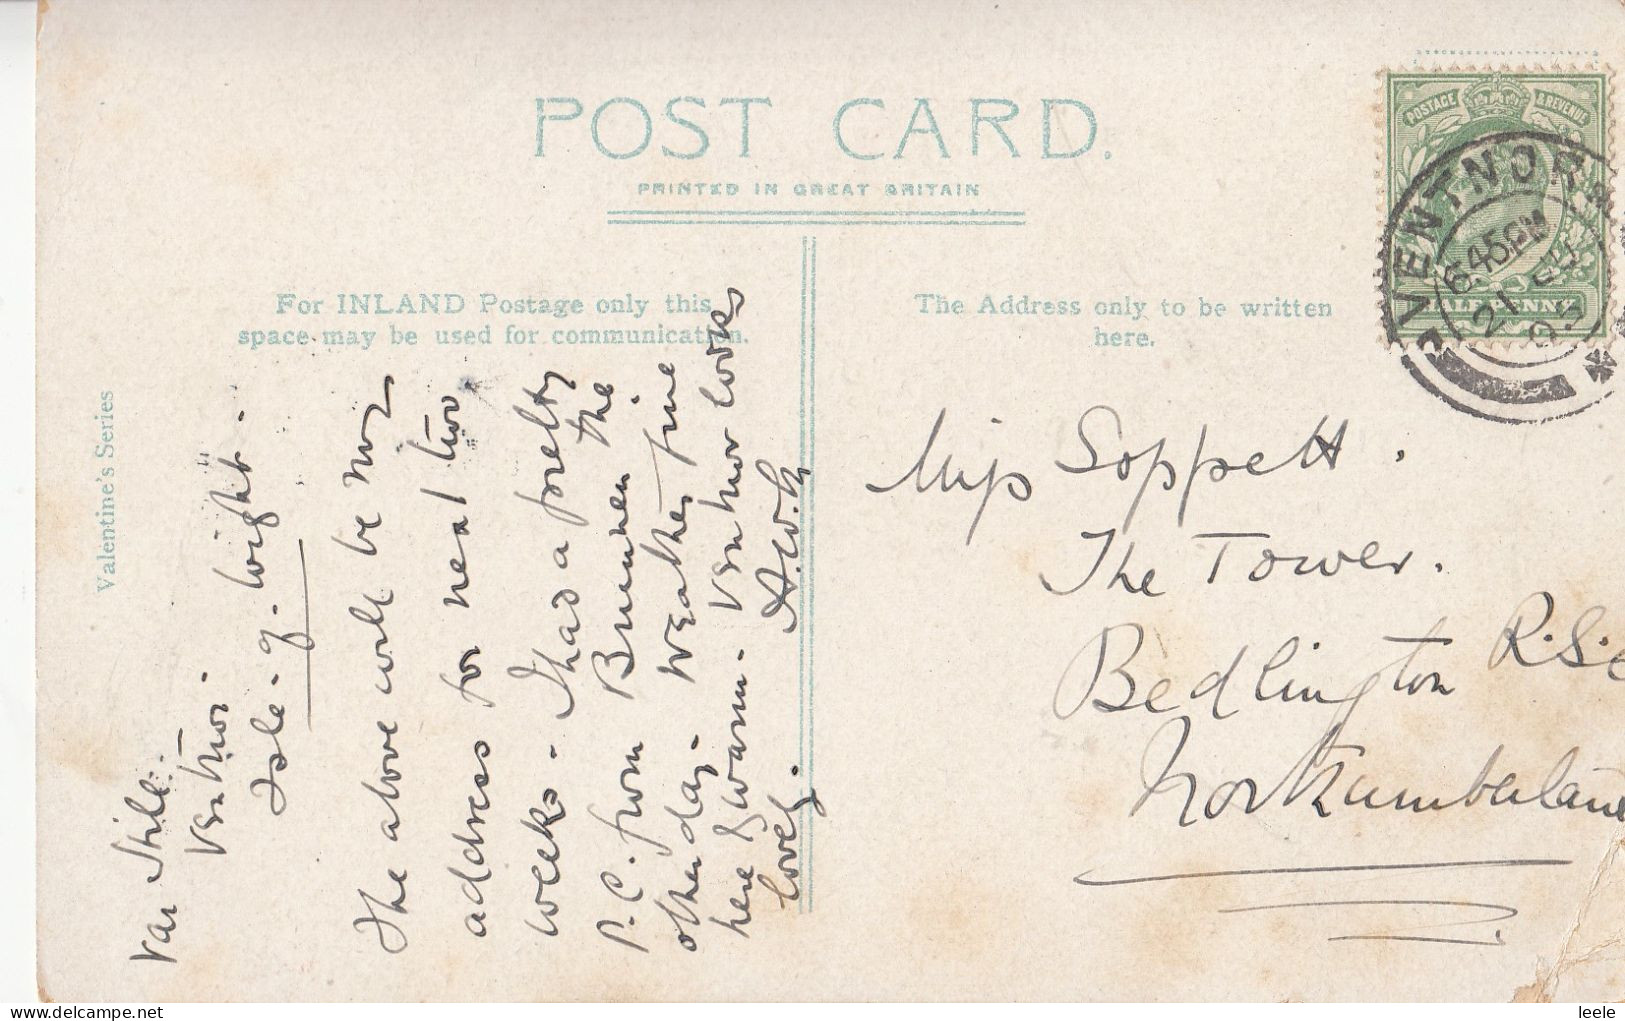 POST CARD.
PRINTED IN GREAT BRITAIN
For INLAND Postage only this
space may be used for communication.
The Address only to be written
here.
Valentine's Series
POSTAGE & REVENUE
HALFPENNY
VENTNOR
6 45 PM
21
05
Ventnor.
Isle. of. Wight.
The above will be my
address for next two
weeks. I had a pretty
P.C. from the
other day. Weather fine
here & warm. Ventnor looks
lovely.
Miss Soppett.
The Tower.
Bedlington R.S.O
Northumberland
leele